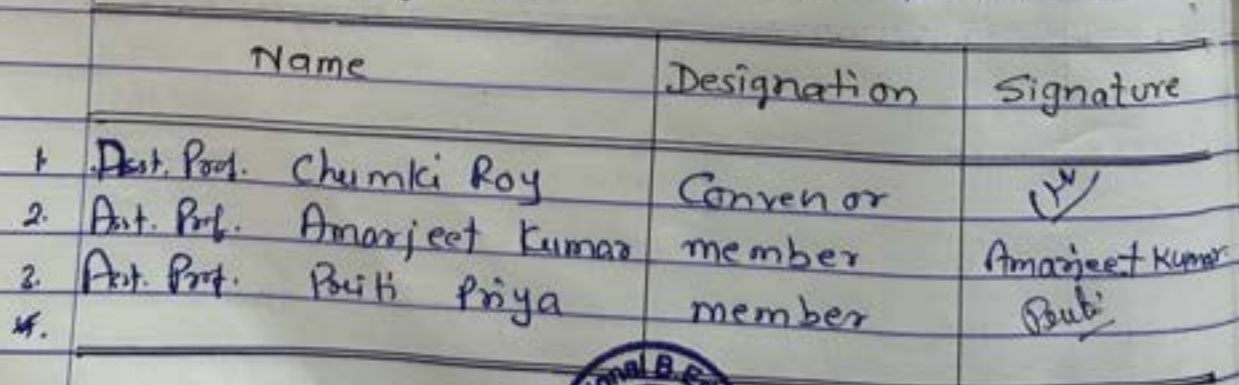 Name Designation Signature
1. Asst. Prof. Chumki Roy Convenor
2. Asst. Prof. Amarjeet Kumar member Amarjeet Kumar
3. Asst. Prof. Priti Priya member Priti
4.
onal B.Ed